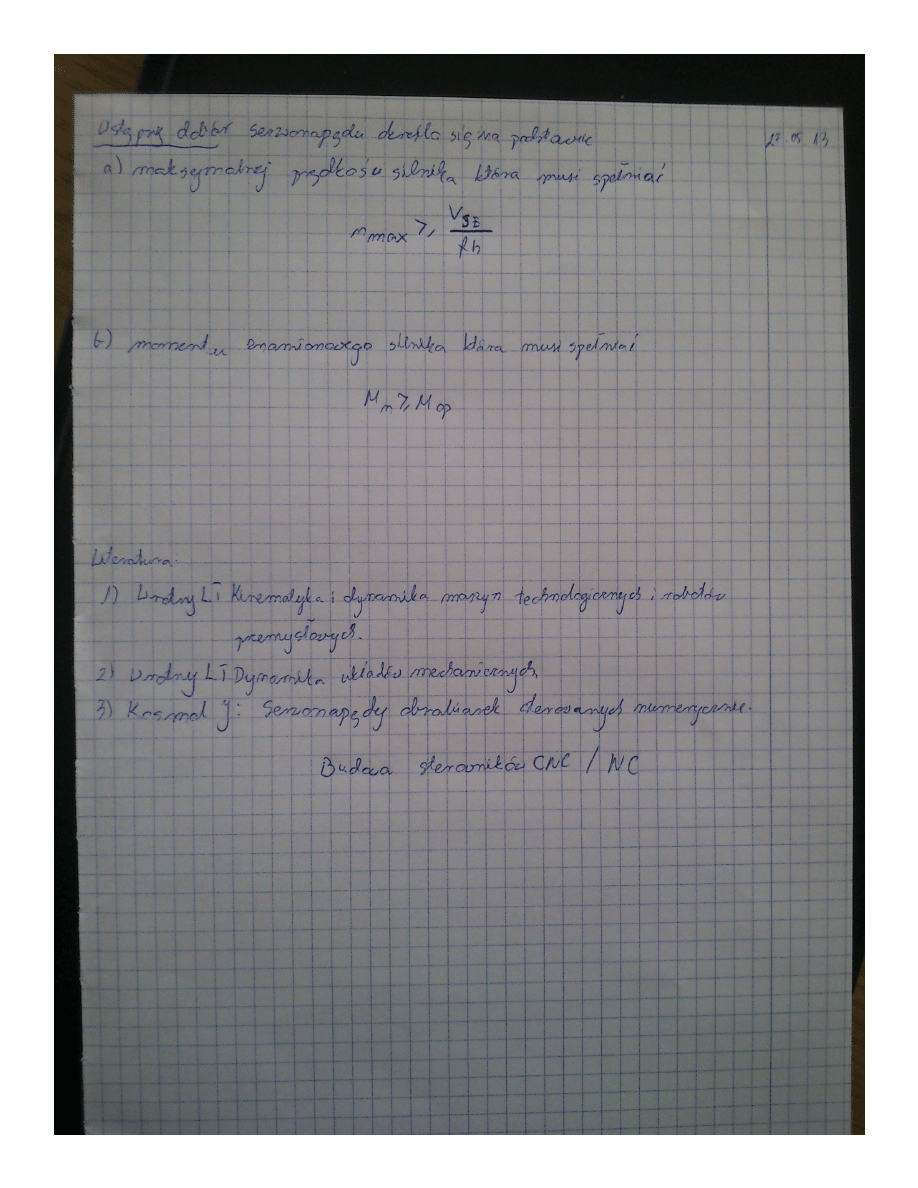 Wstępny dobór serwonapędu określa się na podstawie 27.05.13
a) maksymalnej prędkości silnika która musi spełniać
n max ≥ V SZ / ih
b) momentu znamionowego silnika która musi spełniać
M n ≥ M op
Literatura:
1) Wrotny LT Kinematyka i dynamika maszyn technologicznych i robotów
przemysłowych.
2) Wrotny LT Dynamika układów mechanicznych
3) Kosmol J: Serwonapędy obrabiarek sterowanych numerycznie.
Budowa sterowników CNC / NC